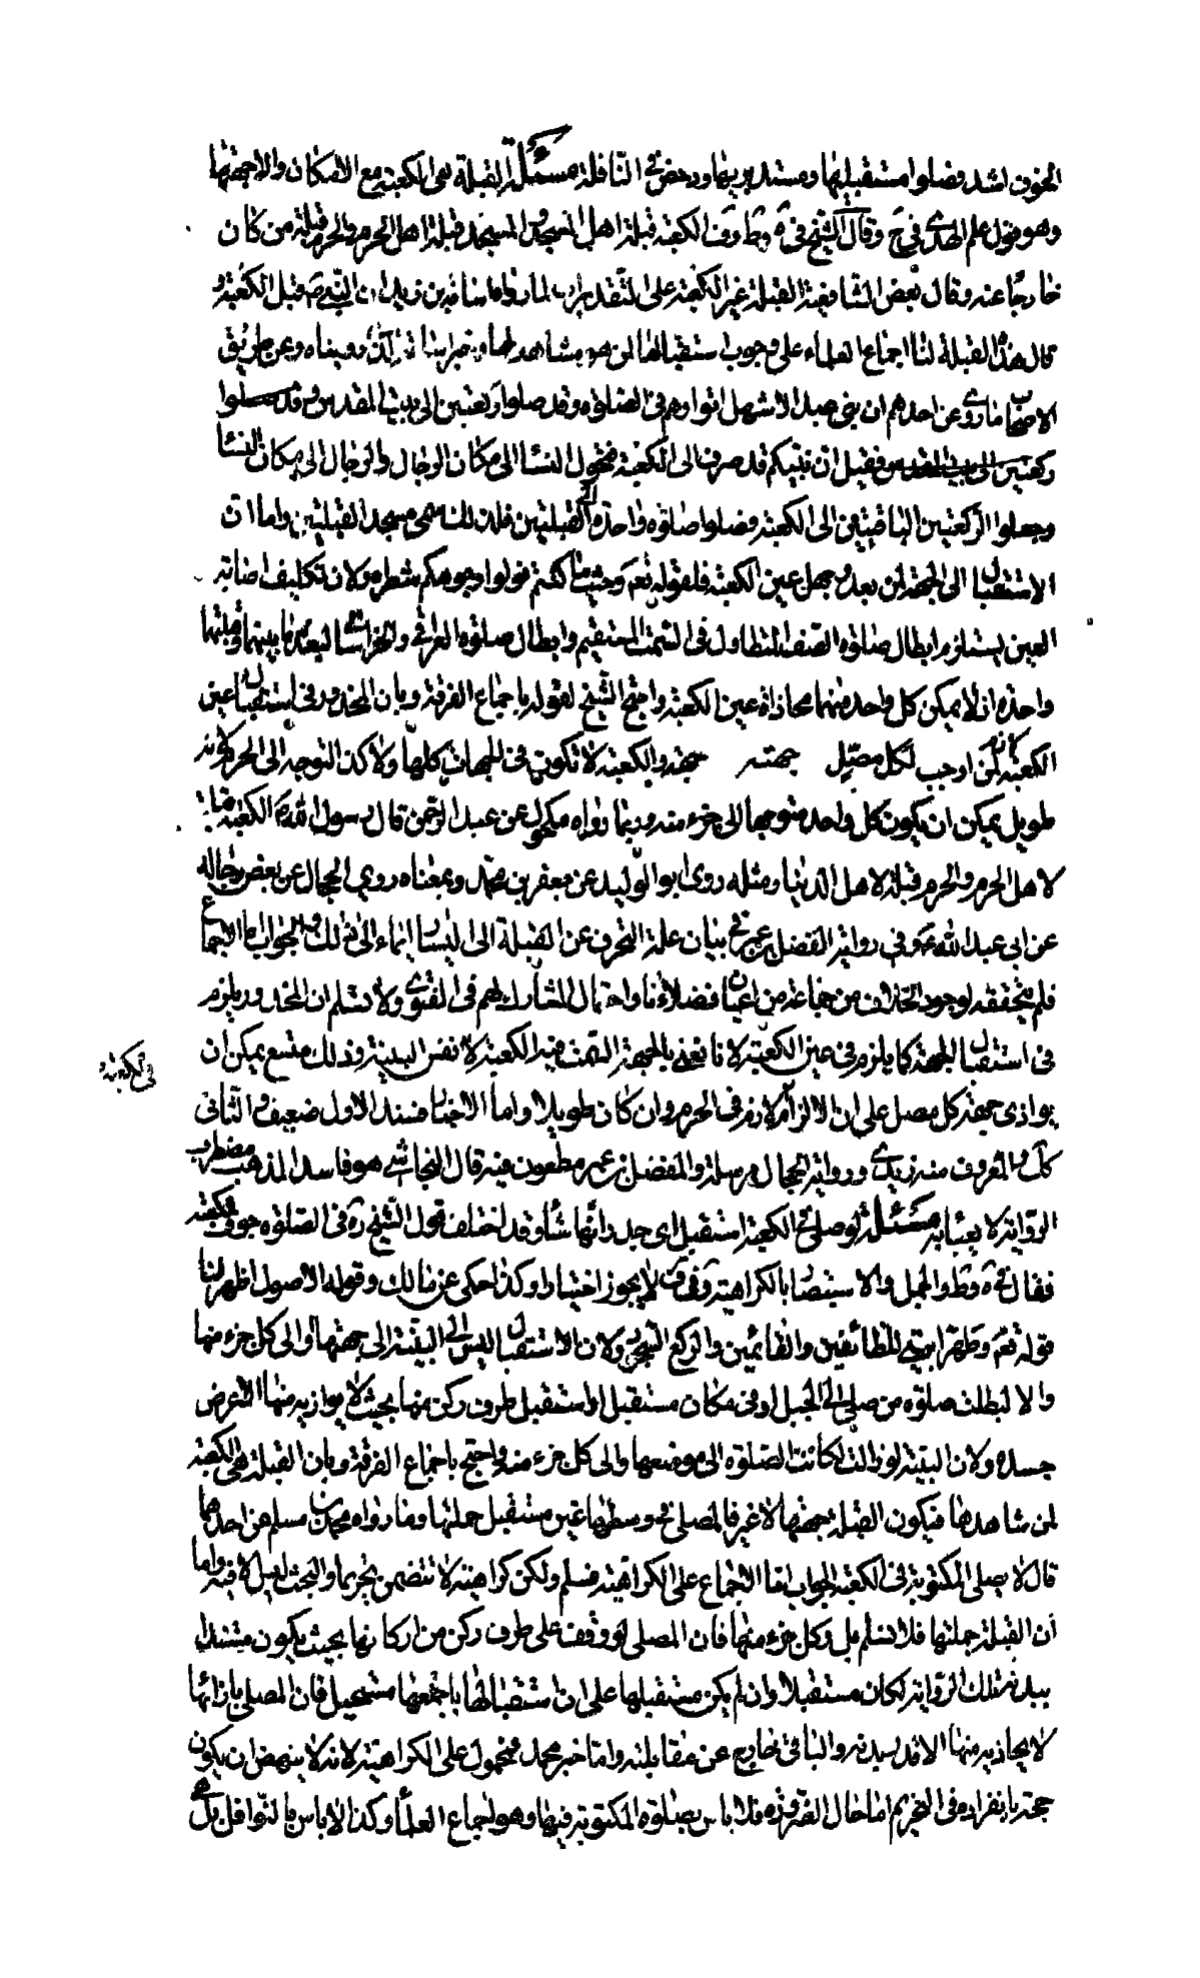 الخوف اشد فصلوا مستقبليها ومستدبريها ورخص في النافلة مسئلة القبلة هي الكعبة مع الامكان والا جهتها
وهو قول علم الهدى في ج وقال الشيخ في ة وط وف الكعبة قبلة اهل المسجد والمسجد قبلة اهل الحرم والحرم قبلة من كان
خارجا عنه وقال بعض الشافعية القبلة عين الكعبة على التقديرات لما رواه اسامة بن زيد ان النبي ص قبل الكعبة و
قال هذه القبلة لنا اجماع العلماء على وجوب استقبالها لمن هو مشاهد لها وخبر اسامة الذي رويناه وعن طريق
الاصحاب ما روى عن احدهم ان بني عبد الاشهل اتوا وهم في الصلوة وقد صلوا ركعتين الى بيت المقدس وقد صلوا
ركعتين الى بيت المقدس فقيل ان نبيكم قد صرف الى الكعبة فتحول النساء الى مكان الرجال والرجال الى مكان النساء
وجعلوا الركعتين الباقيتين الى الكعبة وصلوا صلوة واحدة الى القبلتين فلذلك سمى مسجد القبلتين واما ان
الاستقبال الى الجهة لمن بعد وجهل عين الكعبة فلقوله تع وحيث ما كنتم فولوا وجوهكم شطره ولان تكليف اصابة
العين يستلزم ابطال صلوة الصف المتطاول في السمت المستقيم وابطال صلوة العراقي والخراساني لبعد ما بينهما وقبلتهما
واحدة اذ لا يمكن كل واحد منهما محاذاة عين الكعبة واحتج الشيخ لقوله باجماع الفرقة وبان المحذور في استقبال عين
الكعبة لمن اوجب لكل مصل جهته جهة والكعبة لا تكون في الجهات كلها ولا كذا التوجه الى الحرم لانه
طويل يمكن ان يكون كل واحد متوجها الى جزء منه وبما رواه مكحول عن عبد الرحمن قال رسول الله ص الكعبة قبلة
لاهل الحرم والحرم قبلة لاهل الدنيا ومثله روى ابو الوليد عن جعفر بن محمد وبمعناه روى الحجال عن بعض رجاله
عن ابي عبد الله ع وفي رواية المفضل بن عمر في بيان علة التحرف عن القبلة الى اليسار ايماء الى ذلك والجواب اما الاجماع
فلم نتحققه لوجود الخلاف من جماعة من اعيان فضلائنا واحتمال المشارك لهم في الفتوى ولا نسلم ان المحذور يلزم
في استقبال الجهة كما يلزم في عين الكعبة لانا نعني بالجهة السمت فيه الكعبة لا نفس البنية وذلك متسع يمكن ان
يوازي جهة كل مصل على ان الالزام لازم في الحرم وان كان طويلا واما الاخبار فسند الاول ضعيف والثاني
كك والمعروف منه زيدي ورواية الحجال مرسلة والمفضل بن عمر مطعون فيه قال النجاشي هو فاسد المذهب مضطرب
الرواية لا يعبأ به مسئلة لو صلى في الكعبة استقبل اي جدرانها شاء وقد اختلف قول الشيخ ره في الصلوة جوف الكعبة
فقال في ة وط والجمل والاستبصار بالكراهية وفي ف لا يجوز اختيارا وكذا حكى عن مالك وقوله الاصول اظهر لنا
قوله تع وطهرا بيتي للطائفين والقائمين والركع السجود ولان الاستقبال ليس الى البنية الى جهتها والى كل جزء منها
والا لبطلت صلوة من صلى الى الجبل او في مكان مستقبل او استقبل طرف ركن منها بحيث لا يوازيه منها الا عرض
جسده ولان البنية لو زالت لكانت الصلوة الى موضعها والى كل جزء منه واحتج باجماع الفرقة وبان القبلة هي الكعبة
لمن شاهدها فيكون القبلة جهتها لا غير فالمصلي في وسطها غير مستقبل جملتها وما رواه محمد بن مسلم عن احدهما
قال لا يصلى المكتوبة في الكعبة الجواب اما الاجماع على الكراهية فمسلم ولكن كراهية لا تتضمن تحريما والبحث ليس الا فيه واما
ان القبلة جملتها فلا نسلم بل وكل جزء منها فان المصلي لو وقف على طرف ركن من اركانها بحيث يكون مستندا
ببدنه تلك الزواية لكان مستقبلا وان لم يكن مستقبلها على ان استقبالها باجمعها مستحيل فان المصلي بازائها
لا يحاذيه منها الا قدر بدنه والباقي خارج عن مقابلته واما خبر محمد فمحمول على الكراهية لانه لا ينهض ان يكون
حجة بانفراده في التحريم اما حال الضرورة فلا باس بصلوة المكتوبة فيها وهو اجماع العلماء وكذا لا باس بالنوافل بل
في الكعبة و